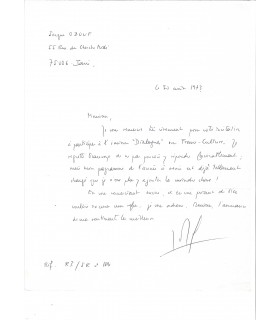 Serge
55 Rue du Cherche Midi
75006 - Paris
le 20 août 1979
Madame,
Je vous remercie très vivement pour votre invitation
à participer à l'émission "Dialogue" sur France-Culture. Je
regrette beaucoup de ne pas pouvoir y répondre favorablement,
mais mon programme de l'année à venir est déjà tellement
chargé que je n'ose plus y ajouter la moindre chose !
En vous remerciant encore, et en vous priant de bien
vouloir excuser mon refus, je vous adresse, Madame, l'assurance
de mes sentiments les meilleurs
Réf.